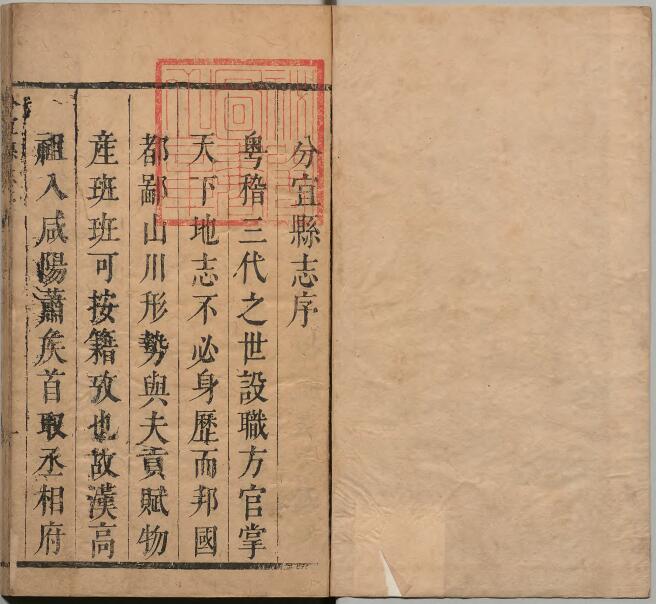 分宜縣志序
粵稽三代之世設職方官掌
天下地志不必身歷而邦國
都鄙山川形勢與夫貢賦物
産班班可按籍攷也故漢高
祖入咸陽蕭矦首取丞相府